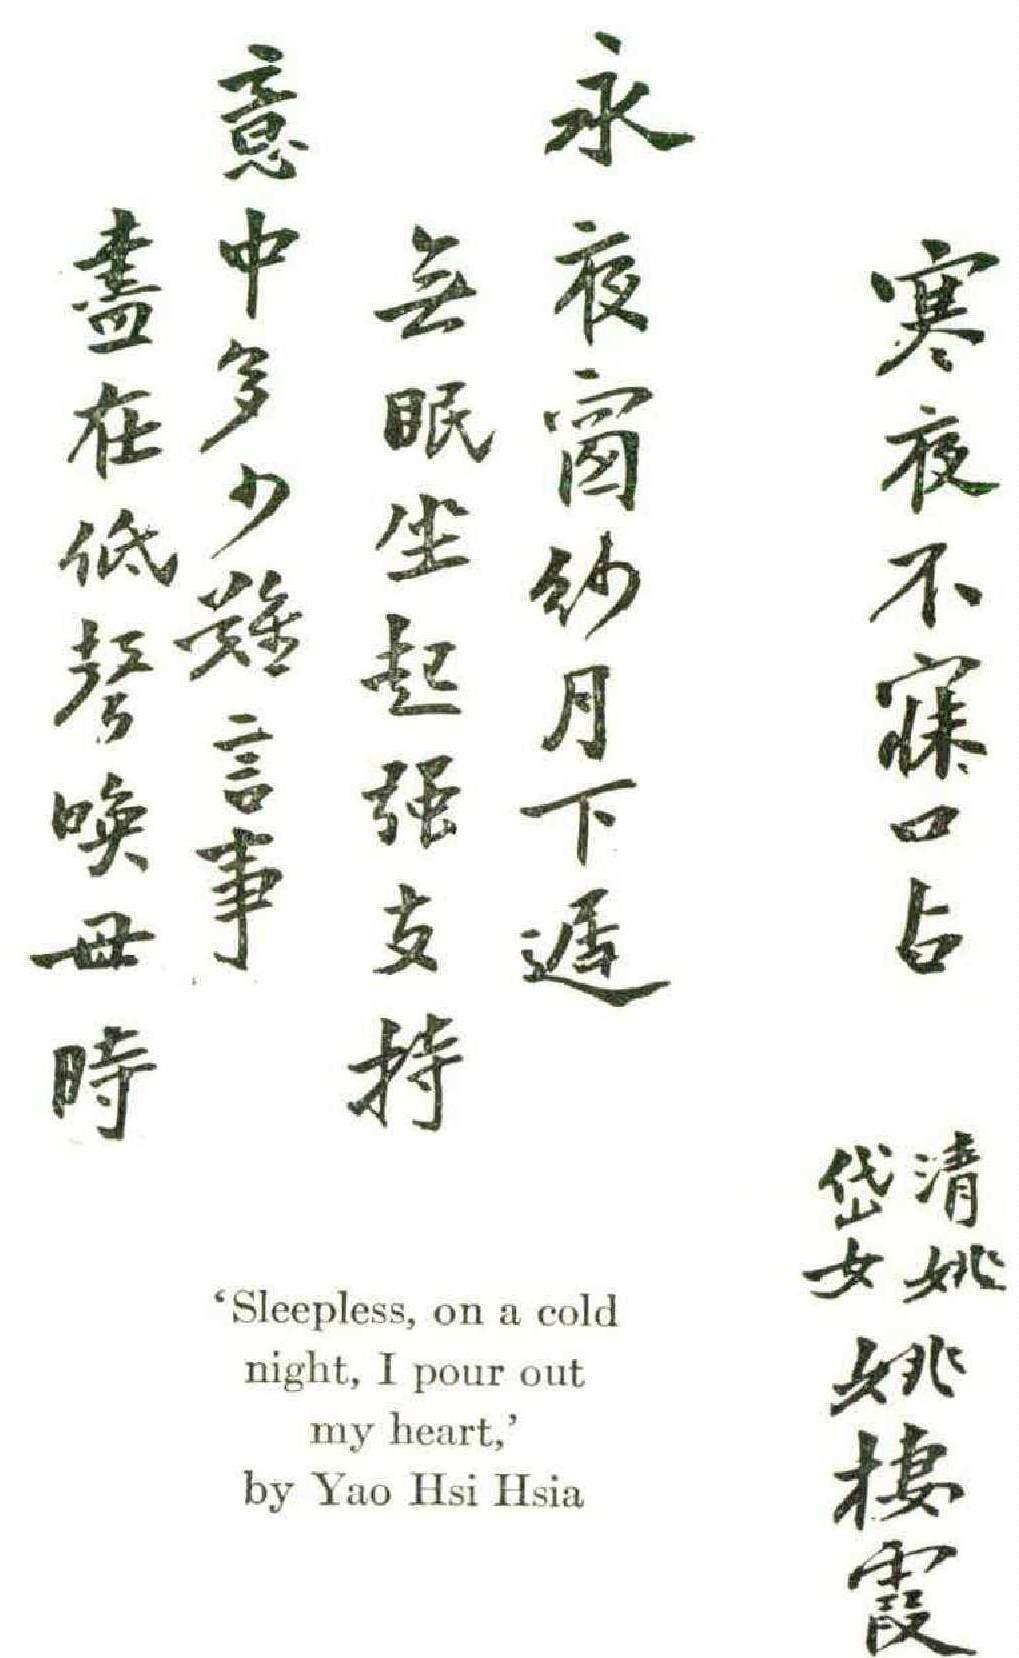 寒夜不寐口占
清姚
岱女
姚棲霞
永夜窗紗月下遲
無眠坐起強支持
意中多少難言事
盡在低聲喚母時
‘Sleepless, on a cold
night, I pour out
my heart,’
by Yao Hsi Hsia